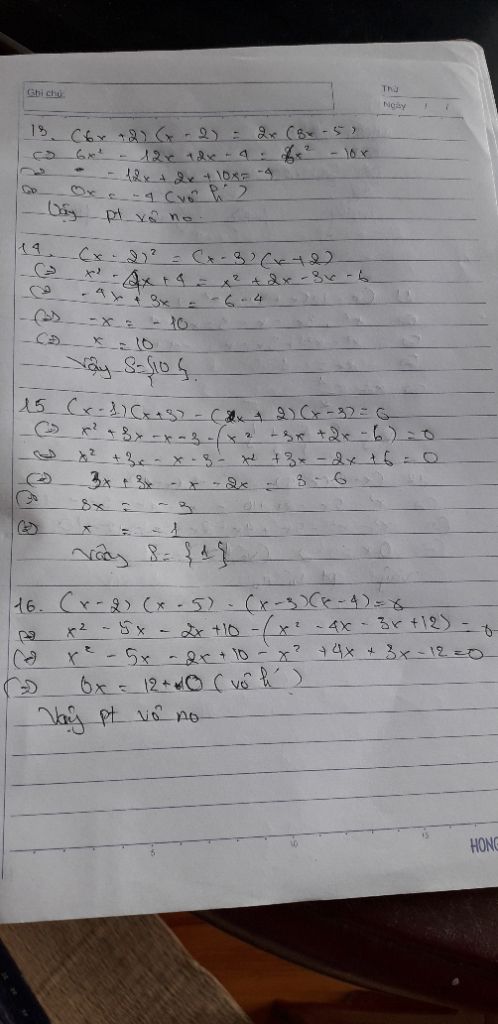 Ghi chú:
Thứ
Ngày / /
13. (6x + 2) (x - 2) = 2x (3x - 5)
<=> 6x² - 12x + 2x - 4 = 6x² - 10x
<=> - 12x + 2x + 10x = 4
<=> 0x = -4 (vô lí)
Vậy pt vô no.
14. (x - 2)² = (x - 3) (x + 2)
<=> x² - 4x + 4 = x² + 2x - 3x - 6
<=> -4x + 3x = -6 - 4
<=> -x = -10
<=> x = 10
Vậy S = {10}.
15 (x - 1) (x + 3) - (x + 2) (x - 3) = 0
<=> x² + 3x - x - 3 - (x² - 3x + 2x - 6) = 0
<=> x² + 3x - x - 3 - x² + 3x - 2x + 6 = 0
<=> 3x + 3x - x - 2x = 3 - 6
<=> 3x = -3
<=> x = -1
Vậy S = {1}
16. (x - 2) (x - 5) - (x - 3) (x - 4) = 0
<=> x² - 5x - 2x + 10 - (x² - 4x - 3x + 12) = 0
<=> x² - 5x - 2x + 10 - x² + 4x + 3x - 12 = 0
<=> 0x = 12 - 10 (vô lí)
Vậy pt vô no
5 10 15
HONG